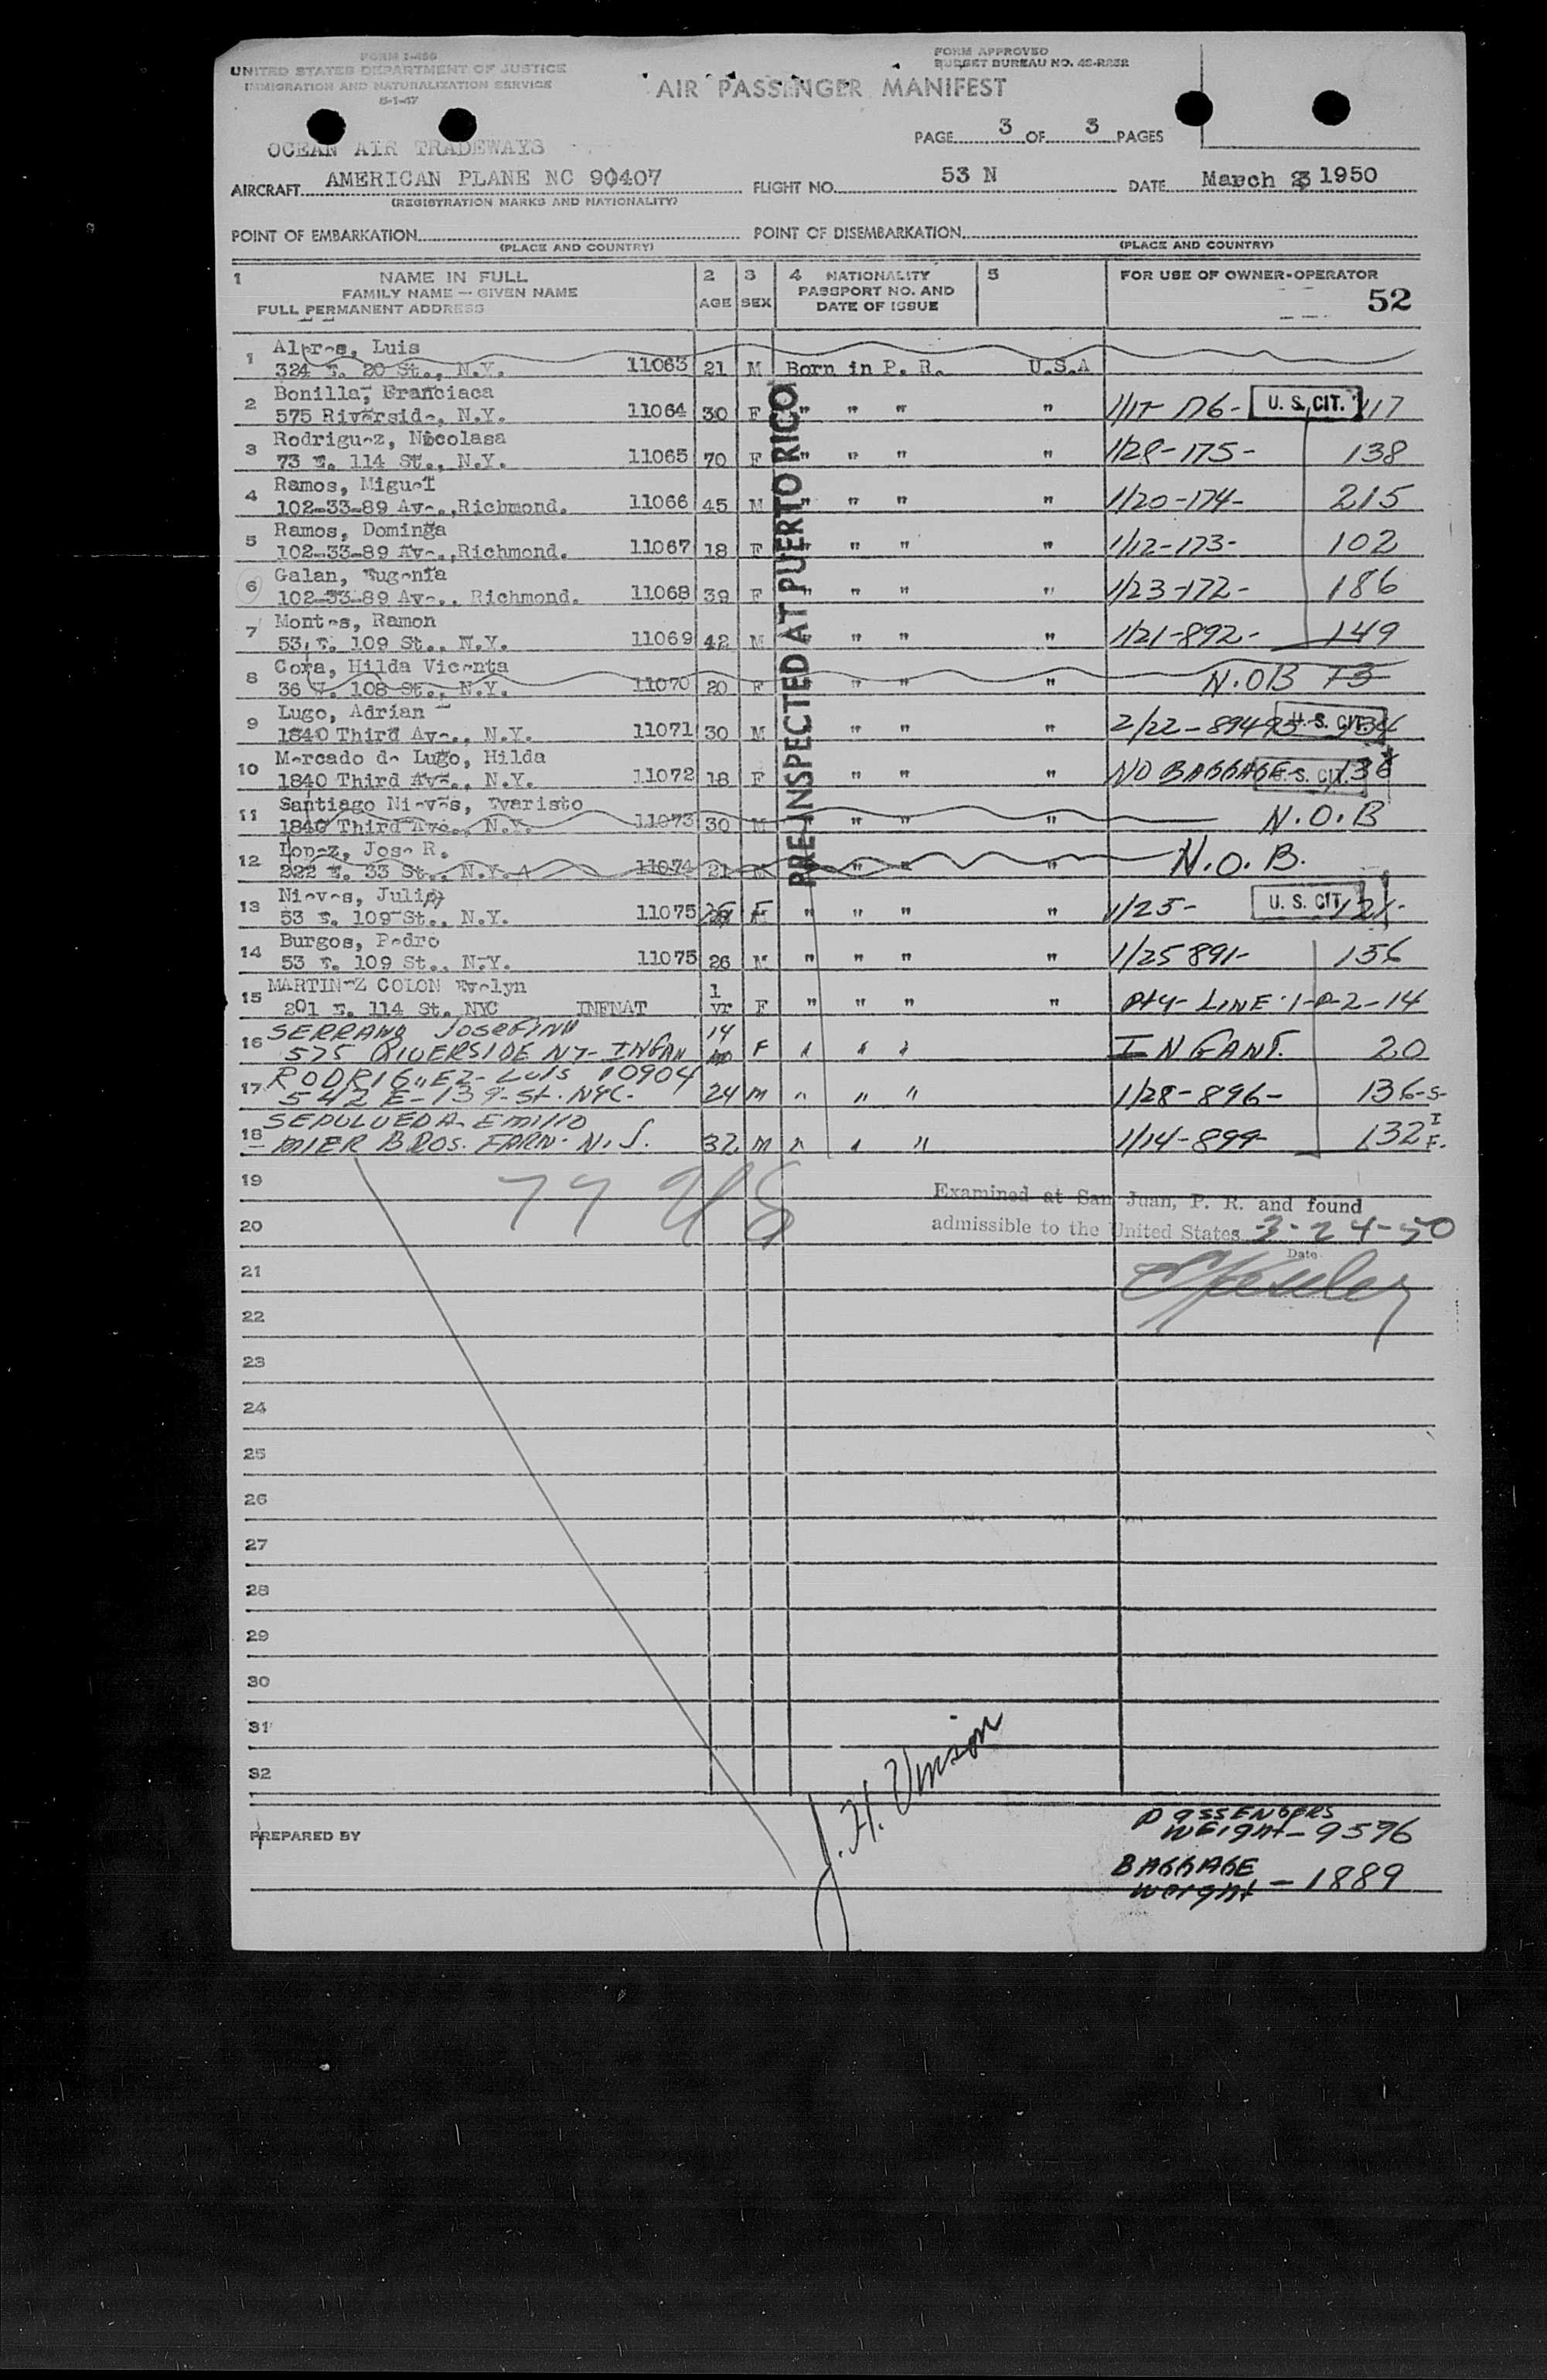 FORM I-466
UNITED STATES DEPARTMENT OF JUSTICE
IMMIGRATION AND NATURALIZATION SERVICE
5-1-47
FORM APPROVED
BUDGET BUREAU NO. 43-R252
AIR PASSENGER MANIFEST
PAGE 3 OF 3 PAGES
OCEAN AIR TRADEWAYS
AIRCRAFT AMERICAN PLANE NC 90407 FLIGHT NO. 53 N DATE March 1950
(REGISTRATION MARKS AND NATIONALITY)
POINT OF EMBARKATION POINT OF DISEMBARKATION
(PLACE AND COUNTRY) (PLACE AND COUNTRY)
1 NAME IN FULL 2 3 4 NATIONALITY 5 FOR USE OF OWNER-OPERATOR
FAMILY NAME — GIVEN NAME AGE SEX PASSPORT NO. AND 52
FULL PERMANENT ADDRESS DATE OF ISSUE
PRE-INSPECTED AT PUERTO RICO
1 Luis
324 E. 20 St., N.Y. 11063 21 M Born in P. R. U.S.A
2 Bonilla, Franciaca
575 Riverside, N.Y. 11064 30 F " " " " 1/17-176- U. S. CIT. 117
3 Rodriguez, Nocolasa
73 E. 114 St., N.Y. 11065 70 F " " " " 1/28-175- 138
4 Ramos, Miguel
102-33-89 Ave.,Richmond. 11066 45 M " " " " 1/20-174- 215
5 Ramos, Dominga
102-33-89 Ave.,Richmond. 11067 18 F " " " " 1/12-173- 102
6 Galan, Eugenia
102-33-89 Ave., Richmond. 11068 39 F " " " " 1/23-172- 186
7 Montes, Ramon
53 E. 109 St., N.Y. 11069 42 M " " " " 1/21-892- 149
8 Cora, Hilda Vicenta
36 108 St., N.Y. 11070 20 F " " " " N.OB
9 Lugo, Adrian
1840 Third Ave., N.Y. 11071 30 M " " " " 2/22- U. S. CIT.
10 Mercado de Lugo, Hilda
1840 Third Ave., N.Y. 11072 18 F " " " " NO BAGGAGE- U. S. CIT. 136
11 Santiago Nieves, Evaristo
1840 Third Ave., N.Y. 11073 30 M " " " " N.O.B
12 Lopez, Jose R.
222 E. 33 St., N.Y. 11074 21 M " " " " N.O.B.
13 Nieves, Julia
53 E. 109 St., N.Y. 11075 F " " " " 1/25- U. S. CIT. 121-
14 Burgos, Pedro
53 E. 109 St., N.Y. 11075 26 M " " " " 1/25 891- 156
15 MARTINEZ COLON Evelyn
201 E. 114 St. NYC INFNAT 1 vr F " " " " LINE 14
16 SERRANO JOSEFINA
575 RIVERSIDE NY- INFAN 14 mo F " " " INFANT. 20
17 RODRIGUEZ- Luis 10904
542 E-139-St. NYC- 24 M " " " 1/28-896- 136-S-
18 SEPULVEDA- Emilio
MIER BROS. FARM- N.J. 32 M " " " 1/14-899- 132 I F.
19
77 US
Examined at San Juan, P. R. and found
20
admissible to the United States 3-24-50
Date
21
22
23
24
25
26
27
28
29
30
31
32
J. H. Vinson
PREPARED BY
PASSENGERS
WEIGHT-9596
BAGGAGE
Weight - 1889